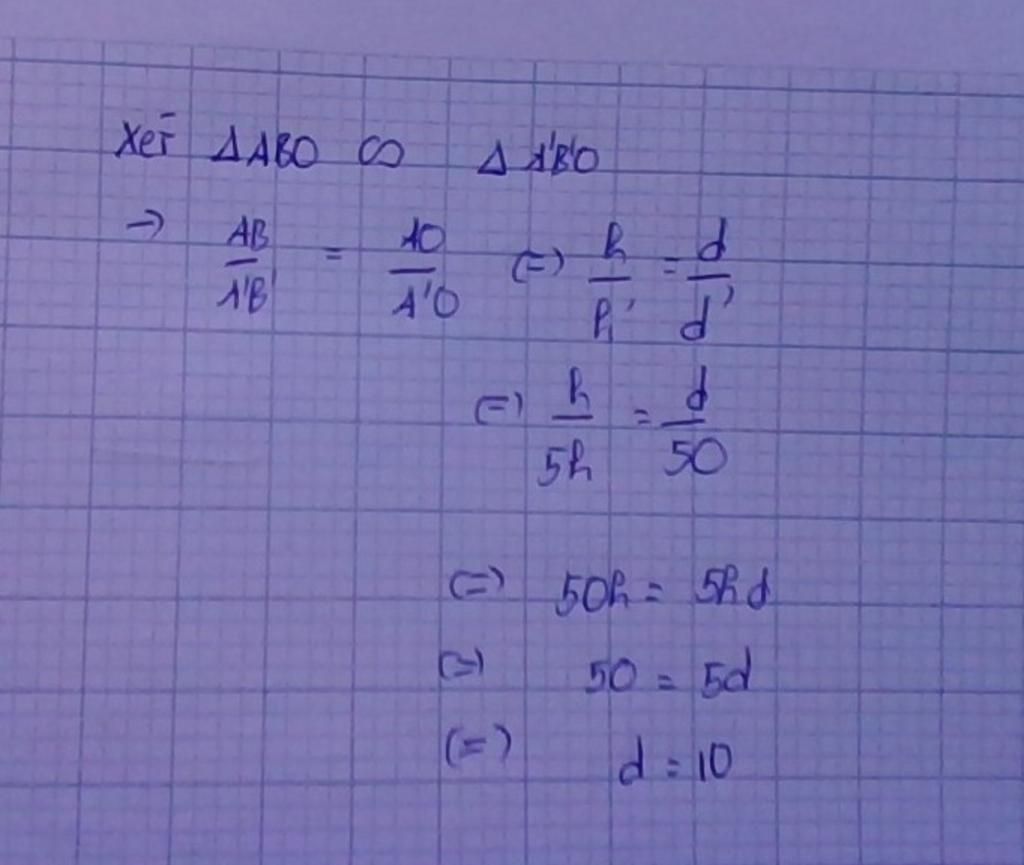 Xét ΔABO ∽ ΔA'B'O
→ AB/A'B' = AO/A'O (=) h/h' = d/d'
(=) h/5h = d/50
(=) 50h = 5hd
(=) 50 = 5d
(=) d = 10